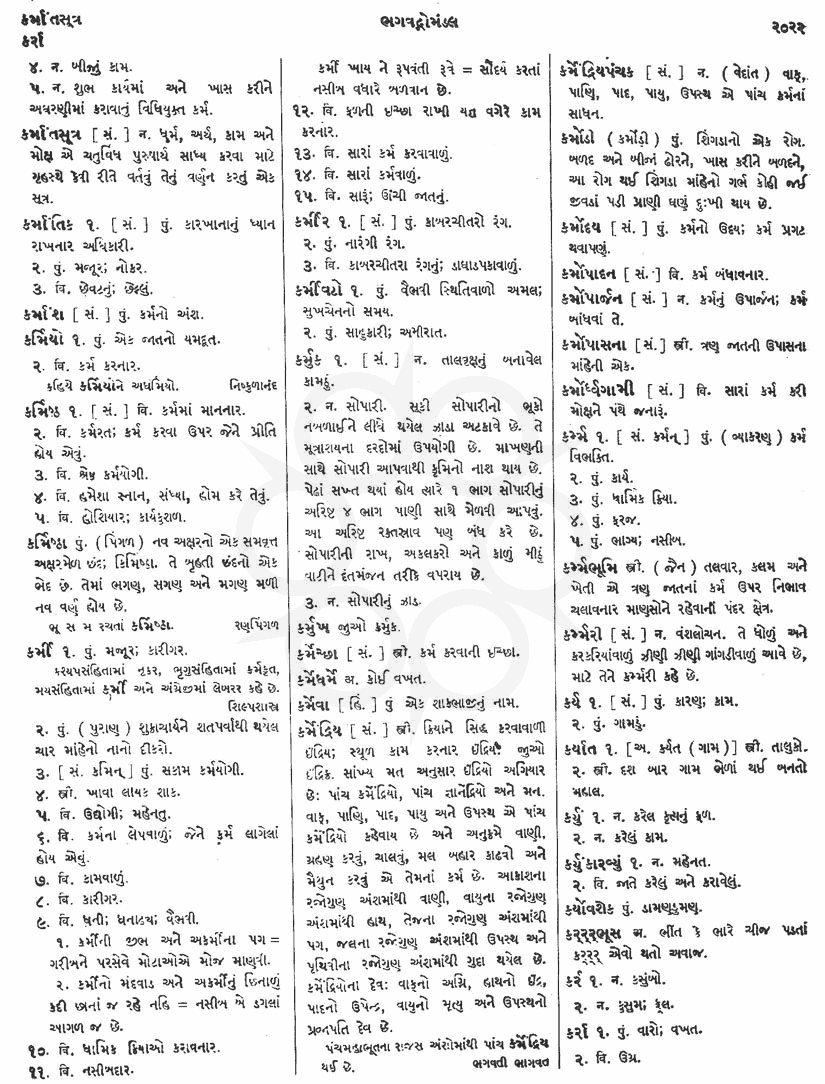 કર્માંતસૂત્ર
કર્રા
ભગવદ્ગોમંડલ
૨૦૨૨
૪. ન. બીજું કામ.
૫. ન. શુભ કાર્યમાં અને ખાસ કરીને
અઘરણીમાં કરાવાતું વિધિયુક્ત કર્મ.
કર્માંતસૂત્ર [ સં. ] ન. ધર્મ, અર્થ, કામ અને
મોક્ષ એ ચતુર્વિધ પુરુષાર્થ સાધ્ય કરવા માટે
ગૃહસ્થે કેવી રીતે વર્તવું તેનું વર્ણન કરતું એક
સૂત્ર.
કર્માંતિક ૧. [ સં. ] પું. કારખાનાનું ધ્યાન
રાખનાર અધિકારી.
૨. પું. મજૂર; નોકર.
૩. વિ. છેવટનું; છેલ્લું.
કર્માંશ [ સં. ] પું. કર્મનો અંશ.
કર્મિયો ૧. પું. એક જાતનો યમદૂત.
૨. વિ. કર્મ કરનાર.
કહિયે કર્મિયોને અધર્મિયો. નિષ્કુળાનંદ
કર્મિષ્ઠ ૧. [ સં. ] વિ. કર્મમાં માનનાર.
૨. વિ. કર્મરત; કર્મ કરવા ઉપર જેને પ્રીતિ
હોય એવું.
૩. વિ. શ્રેષ્ઠ કર્મયોગી.
૪. વિ. હમેશા સ્નાન, સંધ્યા, હોમ કરે તેવું.
૫. વિ. હોશિયાર; કાર્યકુશળ.
કર્મિષ્ઠા પું. ( પિંગળ ) નવ અક્ષરનો એક સમવૃત્ત
અક્ષરમેળ છંદ; કિમિષ્ઠા. તે બૃહતી છંદનો એક
ભેદ છે. તેમાં ભગણ, સગણ અને મગણ મળી
નવ વર્ણ હોય છે.
ભૂ સ મ રચતાં કર્મિષ્ઠા. રણપિંગળ
કર્મી ૧. પું. મજૂર; કારીગર.
કશ્યપસંહિતામાં નૃકર, ભૃગુસંહિતામાં કર્મકૃત,
મયસંહિતામાં કર્મી અને અંગ્રેજીમાં લેબરર કહે છે.
શિલ્પશાસ્ત્ર
૨. પું. ( પુરાણ ) શુક્રાચાર્યને શતપર્વાથી થયેલ
ચાર માંહેનો નાનો દીકરો.
૩. [ સં. કર્મિન્ ] પું. સકામ કર્મયોગી.
૪. સ્ત્રી. ખાવા લાયક શાક.
૫. વિ. ઉદ્યોગી; મહેનતુ.
૬. વિ. કર્મના લેપવાળું; જેને કર્મ લાગેલાં
હોય એવું.
૭. વિ. કામવાળું.
૮. વિ. કારીગર.
૯. વિ. ધની; ધનાઢ્ય; વૈભવી.
૧. કર્મીની જીભ અને અકર્મીના પગ =
ગરીબને પરસેવે મોટાઓએ મોજ માણવી.
૨. કર્મીનો મંદવાડ અને અકર્મીનું છિનાળું
કદી છાનાં જ રહે નહિ = નસીબ બે ડગલાં
આગળ જ છે.
૧૦. વિ. ધાર્મિક ક્રિયાઓ કરાવનાર.
૧૧. વિ. નસીબદાર.
કર્મી ખાય ને રૂપવંતી રૂવે = સૌંદર્ય કરતાં
નસીબ વધારે બળવાન છે.
૧૨. વિ. ફળની ઇચ્છા રાખી યજ્ઞ વગેરે કામ
કરનાર.
૧૩. વિ. સારાં કર્મ કરવાવાળું.
૧૪. વિ. સારાં કર્મવાળું.
૧૫. વિ. સારું; ઊંચી જાતનું.
કર્મીર ૧. [ સં. ] પું. કાબરચીતરો રંગ.
૨. પું. નારંગી રંગ.
૩. વિ. કાબરચીતરા રંગનું; ડાઘાડપકાવાળું.
કર્મીવટો ૧. પું. વૈભવી સ્થિતિવાળો અમલ;
સુખચેનનો સમય.
૨. પું. સાહુકારી; અમીરાત.
કર્મુક ૧. [ સં. ] ન. તાલવૃક્ષનું બનાવેલ
કામઠું.
૨. ન. સોપારી. સૂકી સોપારીનો ભૂકો
નબળાઈને લીધે થયેલ ઝાડા અટકાવે છે. તે
મૂત્રાશયના દરદોમાં ઉપયોગી છે. માખણની
સાથે સોપારી આપવાથી કૃમિનો નાશ થાય છે.
પેઢાં સખ્ત થયાં હોય ત્યારે ૧ ભાગ સોપારીનું
અરિષ્ટ ૪ ભાગ પાણી સાથે મેળવી આપવું.
આ અરિષ્ટ રક્તસ્રાવ પણ બંધ કરે છે.
સોપારીની રાખ, અકલકરો અને કાળું મીઠું
વાટીને દંતમંજન તરીકે વપરાય છે.
૩. ન. સોપારીનું ઝાડ.
કર્મુખ જુઓ કર્મુક.
કર્મેચ્છા [ સં. ] સ્ત્રી. કર્મ કરવાની ઇચ્છા.
કર્મેધર્મે અ. કોઈ વખત.
કર્મેવા [ હિં. ] પું એક શાકભાજીનું નામ.
કર્મેંદ્રિય [ સં. ] સ્ત્રી. ક્રિયાને સિદ્ધ કરવાવાળી
ઇંદ્રિય; સ્થૂળ કામ કરનાર ઇંદ્રિય; જુઓ
ઇંદ્રિક. સાંખ્ય મત અનુસાર ઇંદ્રિયો અગિયાર
છે: પાંચ કર્મેંદ્રિયો, પાંચ જ્ઞાનેંદ્રિયો અને મન.
વાક્, પાણિ, પાદ, પાયુ અને ઉપસ્થ એ પાંચ
કર્મેંદ્રિયો કહેવાય છે અને અનુક્રમે વાણી,
ગ્રહણ કરવું, ચાલવું, મલ બહાર કાઢવો અને
મૈથુન કરવું એ તેમનાં કર્મ છે. આકાશના
રજોગુણ અંશમાંથી વાણી, વાયુના રજોગુણ
અંશમાંથી હાથ, તેજના રજોગુણ અંશમાંથી
પગ, જલના રજોગુણ અંશમાંથી ઉપસ્થ અને
પૃથિવીના રજોગુણ અંશમાંથી ગુદા થયેલ છે.
કર્મેંદ્રિયોના દેવ: વાક્નો અગ્નિ, હાથનો ઇંદ્ર,
પાદનો ઉપેન્દ્ર, વાયુનો મૃત્યુ અને ઉપસ્થનો
પ્રજાપતિ દેવ છે.
પંચમહાભૂતના રાજસ અંશોમાંથી પાંચ કર્મેંદ્રિય
થઈ છે. ભગવતી ભાગવત
કર્મેંદ્રિયપંચક [ સં. ] ન. ( વેદાંત ) વાક્,
પાણિ, પાદ, પાયુ, ઉપસ્થ એ પાંચ કર્મનાં
સાધન.
કર્મોડો ( કર્મોડી ) પું. શિંગડાનો એક રોગ.
બળદ અને બીજાં ઢોરને, ખાસ કરીને બળદને,
આ રોગ થઈ શિંગડા માંહેનો ગર્ભ કોહી જઈ
જીવડાં પડી પ્રાણી ઘણું દુ:ખી થાય છે.
કર્મોદય [ સં. ] પું. કર્મનો ઉદય; કર્મ પ્રગટ
થવાપણું.
કર્મોપાદન [ સં. ] વિ. કર્મ બંધાવનાર.
કર્મોપાર્જન [ સં. ] ન. કર્મનું ઉપાર્જન; કર્મ
બાંધવાં તે.
કર્મોપાસના [ સં. ] સ્ત્રી. ત્રણ જાતની ઉપાસના
માંહેની એક.
કર્મોર્ધ્વગામી [ સં. ] વિ. સારાં કર્મ કરી
મોક્ષને પંથે જનારું.
કર્મ્મ ૧. [ સં. કર્મન્ ] પું. ( વ્યાકરણ ) કર્મ
વિભક્તિ.
૨. પું. કાર્ય.
૩. પું. ધાર્મિક ક્રિયા.
૪. પું. ફરજ.
૫. પું. ભાગ્ય; નસીબ.
કર્મ્મભૂમિ સ્ત્રી. ( જૈન ) તલવાર, કલમ અને
ખેતી એ ત્રણ જાતનાં કર્મ ઉપર નિભાવ
ચલાવનાર માણસોને રહેવાની પંદર ક્ષેત્ર.
કર્મ્મરી [ સં. ] ન. વંશલોચન. તે ધોળું અને
કરકરિયાંવાળું ઝીણી ઝીણી ગાંગડીવાળું આવે છે,
માટે તેને કર્મ્મરી કહે છે.
કર્ય ૧. [ સં. ] પું. કારણ; કામ.
૨. પું. ગામડું.
કર્યાત ૧. [ અ. કર્યત ( ગામ ) ] સ્ત્રી. તાલુકો.
૨. સ્ત્રી. દશ બાર ગામ ભેળાં થઈ બનતો
મહાલ.
કર્યું ૧. ન. કરેલ કૃત્યનું ફળ.
૨. ન. કરેલું કામ.
કર્યુંકારવ્યું ૧. ન. મહેનત.
૨. વિ. જાતે કરેલું અને કરાવેલું.
કર્યોવરોક પું. ડામણડુમણ.
કરર્રર્ભૂસ અ. ભીંત કે ભારે ચીજ પડતાં
કરર્રર્ એવો થતો અવાજ.
કર્ર ૧. ન. કસુંબો.
૨. ન. કુસુમ; ફૂલ.
કર્રા ૧. પું. વારો; વખત.
૨. વિ. ઉગ્ર.